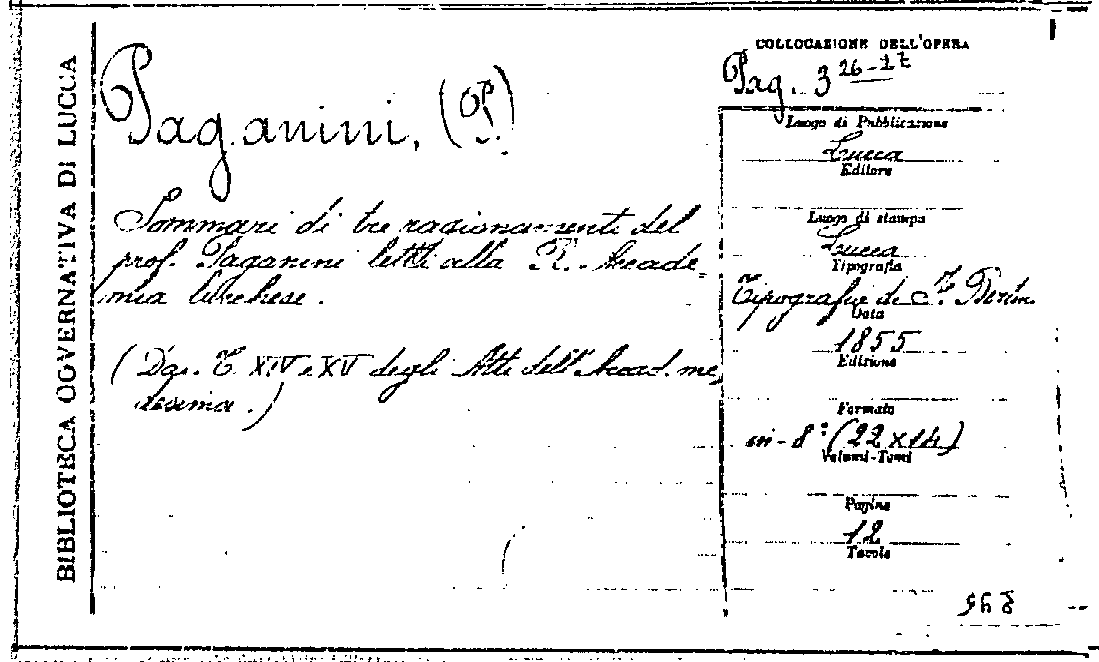 BIBLIOTECA GOVERNATIVA DI LUCCA
Paganini, (P.)
Sommari di tre ragionamenti del
prof. Paganini letti alla R. Accade-
mia lucchese.
(Dai T. XIV e XV degli Atti dell'Accad. me-
desima.)
COLLOCAZIONE DELL'OPERA
Pag. 3 26-27
Luogo di Pubblicazione
Lucca
Editore
Luogo di stampa
Lucca
Tipografia
Tipografia di
Data
1855
Edizione
Formato
in-8° (22x14)
Volumi-Tomi
Pagine
12
Tavole